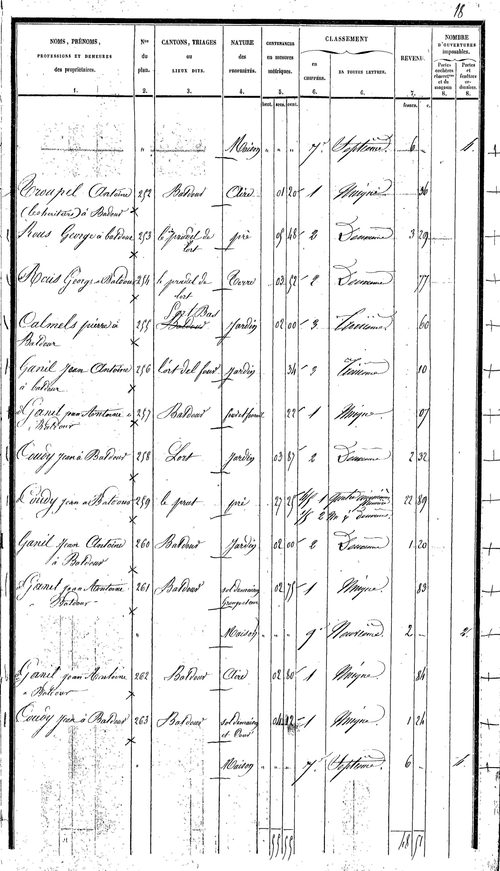 18
NOMS, PRÉNOMS, PROFESSIONS ET DEMEURES des propriétaires. 1.
Nos du plan. 2.
CANTONS, TRIAGES OU LIEUX DITS. 3.
NATURE des PROPRIÉTÉS. 4.
CONTENANCES en mesures métriques. 5.
CLASSEMENT
EN CHIFFRES. 6.
EN TOUTES LETTRES. 6.
REVENU. 7.
NOMBRE D'OUVERTURES imposables.
Portes cochères charretres et de magasin 8.
Portes et fenêtres ordinaires. 8.
hect. ares. cent. francs. c.
" Maison " " " 7e Septième 6 "
Troupel Antoine 252 Baldour Aire 01 20 1 Unique 36
à Baldour
Rous George à Baldour 253 le pradel de Lort pré 05 48 2 Deuxième 3 29
Rous George à Baldour 254 le pradel de Lort Terre 03 52 2 Deuxième 77
Calmels pierre à Baldour 255 Lort Bas Jardin 02 00 3 Troisième 60
Ganil Jean Antoine à Baldour 256 Lort del four Jardin 34 3 Troisième 10
Ganil jean Antoine à Baldour 257 Baldour 22 1 Unique 07
Coudy jean à Baldour 258 Lort Jardin 03 87 2 Deuxième 2 32
Coudy jean à Baldour 259 le prat pré 27 25 22 89
Ganil Jean Antoine à Baldour 260 Baldour Jardin 02 00 2 Deuxième 1 20
Ganil jean Antoine à Baldour 261 Baldour sol de maison 02 75 1 Unique 83
" Maison " " " 9e Neuvième 2 "
Ganil jean Antoine à Baldour 262 Baldour Aire 02 80 1 Unique 84
Coudy jean à Baldour 263 Baldour sol de maison et Cour 04 12 1 Unique 1 24
" Maison " " " 7e Septième 6 "
55 55 48 51